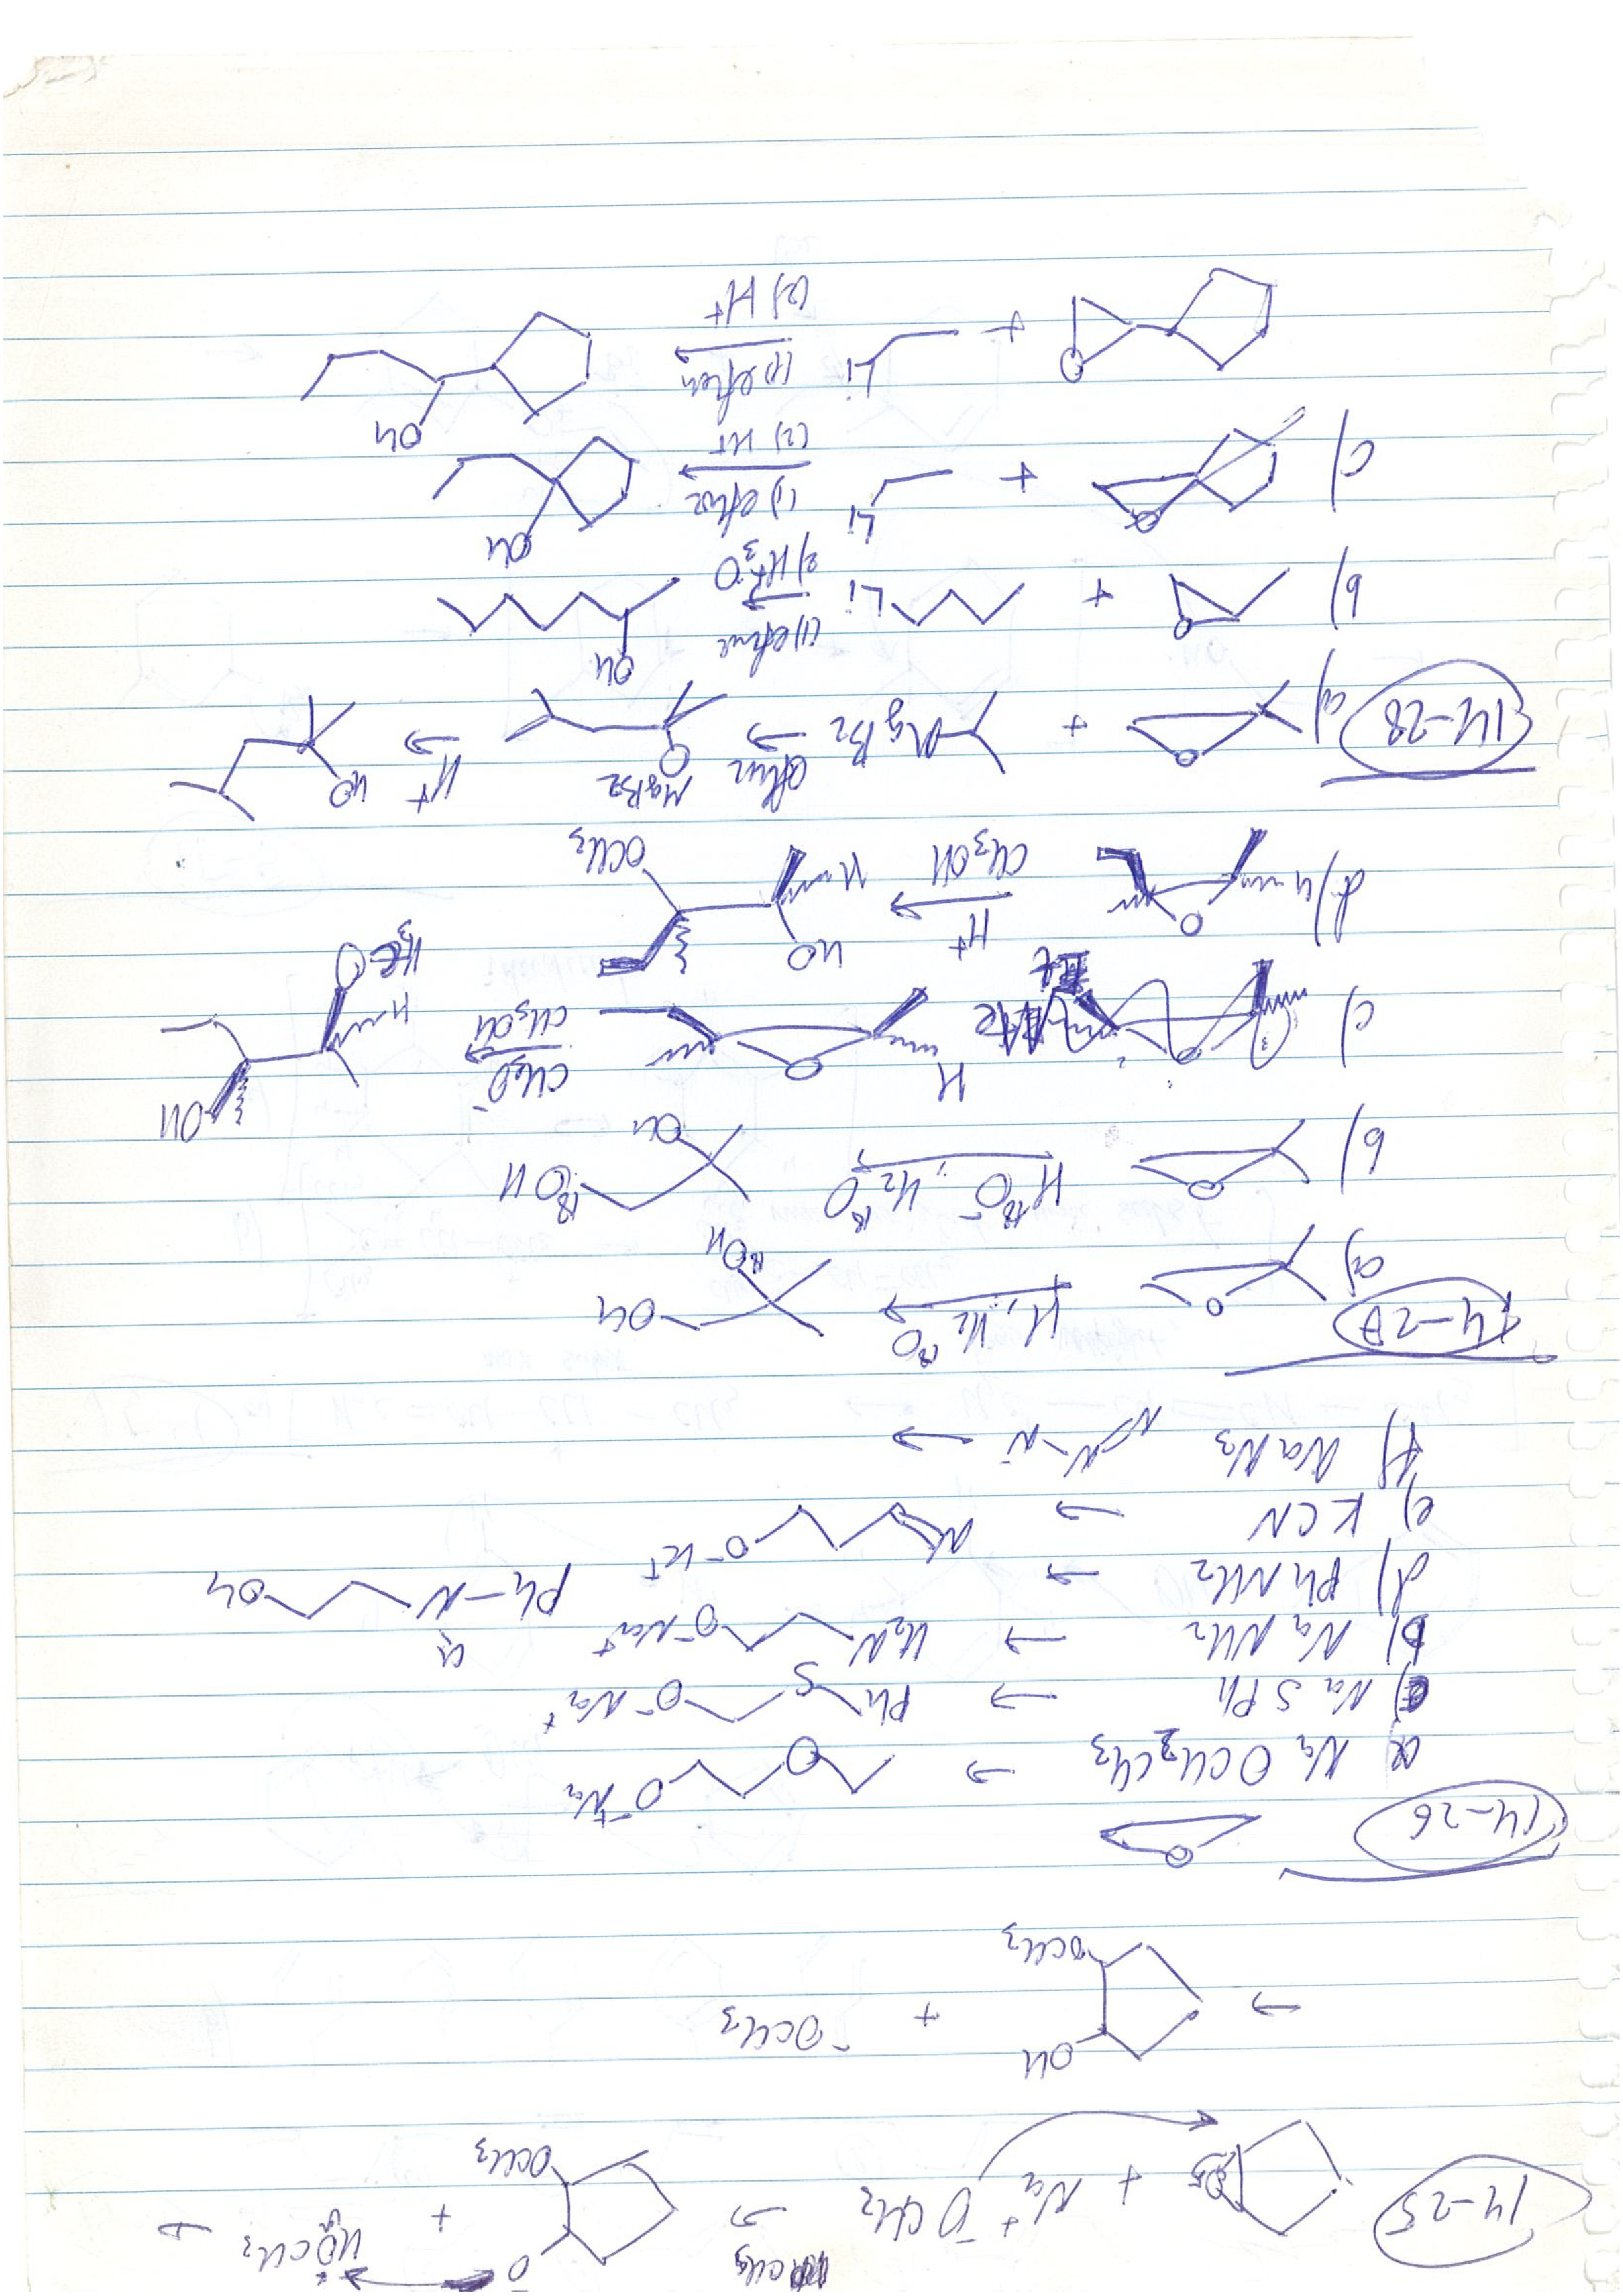 14-25 + Na+ -OCH3 → O- OCH3 + HOCH3 →
→ OH OCH3 + -OCH3
14-26 O
a) NaOCH2CH3 → O O-Na+
c) NaSPh → Ph S O-Na+
b) NaNH2 → H2N O-Na+
d) PhNH2 → Ph-N H OH
e) KCN → N O-K+
f) NaN3 N N-N- →
14-27 a) O H+, H2 18O → 18OH OH
b) O H18O-, H2 18O → 18OH OH
c) O H CH3O- CH3OH → OH H H3CO
d) H O H+ CH3OH → HO H OCH3
14-28 a) O + MgBr ether → OMgBr H+ → HO
b) O + Li 1) ether 2) H3O+ → OH
c) O + Li 1) ether 2) H+ → OH
O + Li (1) ether (2) H+ → OH